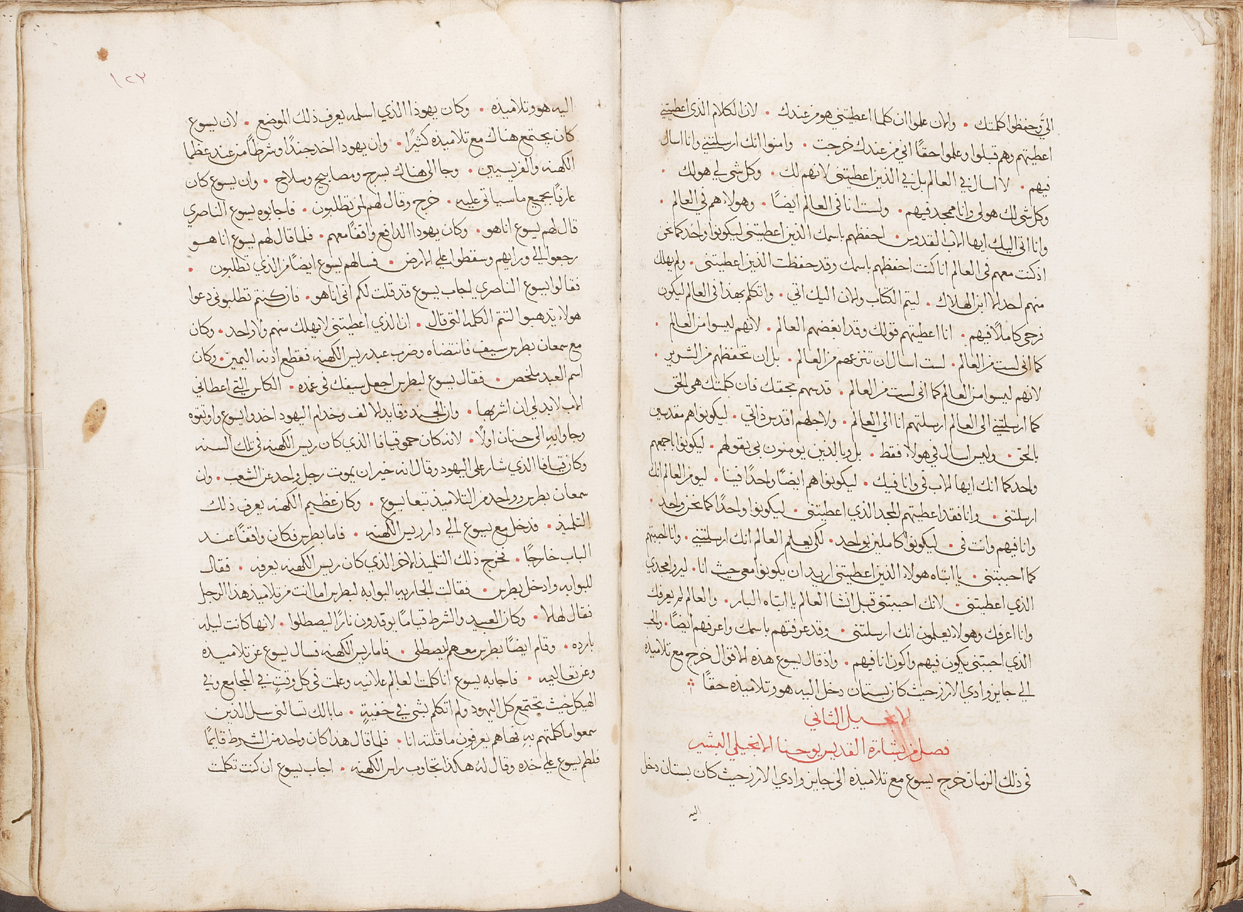 اليّ وحفظوا كلمتك • والان علموا ان كلما اعطيتني هو من عندك • لان الكلام الذي اعطيتني
اعطيتهم وهم قبلوا وعلموا حقًا اني من عندك خرجت • وامنوا انك ارسلتني وانا اسال
فيهم • لا اسال في العالم بل في الذين اعطيتني لانهم لك • وكل شي لي هو لك •
وكل شي لك هو لي وانا ممجد فيهم • ولست انا في العالم ايضًا • وهولاء هم في العالم •
وانا اتي اليك ايها الاب القدوس • احفظهم باسمك الذين اعطيتني ليكونوا واحد كما نحن
اذ كنت معهم في العالم انا كنت احفظهم باسمك وقد حفظت الذين اعطيتني • ولم يهلك
منهم احد الا ابن الهلاك • ليتم الكتاب والان اليك اتي • واتكلم بهذا في العالم ليكون
فرحي كاملًا فيهم • انا اعطيتهم قولك وقد ابغضهم العالم • لانهم ليسوا من العالم •
كما اني لست من العالم • لست اسال ان تنزعهم من العالم • بل ان تحفظهم من الشرير •
لانهم ليسوا من العالم كما اني لست من العالم • قدسهم بحقك فان كلمتك هي الحق
كما ارسلتني الى العالم ارسلتهم انا الى العالم • ولاجلهم اقدس ذاتي • ليكونوا هم مقدسين
بالحق • وليس اسال في هولاء فقط • بل وبالذين يومنون بي بقولهم • ليكونوا باجمعهم
واحد كما انك ايها الاب فيّ وانا فيك • ليكونوا هم ايضًا واحدًا فينا • ليومن العالم انك
ارسلتني • وانا فقد اعطيتهم المجد الذي اعطيتني • ليكونوا واحدًا كما نحن واحد •
وانا فيهم وانت فيّ • ليكونوا كاملين بواحد • لكي يعلم العالم انك ارسلتني • وانا احببتهم
كما احببتني • يا ابتاه هولاء الذين اعطيتني اريد ان يكونوا معي حيث انا • ليروا مجدي
الذي اعطيتني • لانك احببتني قبل انشا العالم يا ابتاه البار • والعالم لم يعرفك
وانا اعرفك وهولاء يعلمون انك ارسلتني • وقد عرفتهم باسمك واعرفهم ايضًا • والحب
الذي احببتني يكون فيهم واكون انا فيهم • واذ قال يسوع هذه الاقوال خرج مع تلاميذه
الى جايز وادي الارز حيث كان بستان دخل اليه هو وتلاميذه حقًا
الانجيل الثاني
فصل من بشارة القديس يوحنا الانجيلي البشير
في ذلك الزمان خرج يسوع مع تلاميذه الى جايز وادي الارز حيث كان بستان دخل
اليه
١٢٣
اليه هو وتلاميذه • وكان يهوذا الذي اسلمه يعرف ذلك الموضع • لان يسوع
كان يجتمع هناك مع تلاميذه كثيرًا • وان يهوذا اخذ جندًا وشرطًا من عند عظما
الكهنه والفريسيين • وجا الى هناك بسرج ومصابيح وسلاح • وان يسوع كان
عارفًا بجميع ما سياتي عليه • خرج وقال لهم لمن تطلبون • فاجابوه يسوع الناصري
قال لهم يسوع انا هو • وكان يهوذا الدافع واقفًا معهم • فلما قال لهم يسوع انا هو
رجعوا الى ورايهم وسقطوا على الارض • فسالهم يسوع ايضًا من الذي تطلبون •
فقالوا يسوع الناصري اجاب يسوع قد قلت لكم اني انا هو • فان كنتم تطلبوني دعوا
هولاء يذهبوا لتتم الكلمه التي قال • ان الذي اعطيتني لا يهلك منهم ولا واحد • وكان
مع سمعان بطرس سيف فانتضاه وضرب عبد ريس الكهنه فقطع اذنه اليمين • وكان
اسم العبد ملخص • فقال يسوع لبطرس اجعل سيفك في غمده • الكاس التي اعطاني
الاب لابد لي ان اشربها • وان الجند وقايد الالف وخدام اليهود اخذوا يسوع واوثقوه
وجاوا به الى حنان اولًا • لانه كان حمو قيافا الذي كان ريس الكهنه في تلك السنه
وكان قيافا الذي شار على اليهود وقال انه خير ان يموت رجل واحد عن الشعب • وان
سمعان بطرس وواحد من التلاميذ تبعا يسوع • وكان عظيم الكهنه يعرف ذلك
التلميذ • فدخل مع يسوع الى دار ريس الكهنه • فاما بطرس فكان واقفًا عند
الباب خارجًا • فخرج ذلك التلميذ الاخر الذي كان ريس الكهنه يعرفه • فقال
للبوابه وادخل بطرس • فقالت الجاريه البوابه لبطرس اما انت من تلاميذ هذا الرجل
فقال لها لا • وكان العبيد والشرط قيامًا يوقدون نارًا ليصطلوا • لانها كانت ليله
بارده • وقام ايضًا بطرس معهم ليصطلي • فاما ريس الكهنه فسال يسوع عن تلاميذه
وعن تعاليمه • فاجابه يسوع انا كلمت العالم علانيه وعلمت في كل وقتٍ في المجامع وفي
الهيكل حيث يجتمع كل اليهود ولم اتكلم بشي في خفيةٍ • ما بالك تسالني سل الذين
سمعوا ما كلمتهم به فهاهم يعرفون ما قلته انا • فلما قال هذا كان واحد من الشرط قايمًا
فلطم يسوع على خده وقال له هكذا تجاوب راس الكهنه • اجاب يسوع ان كنت تكلمت